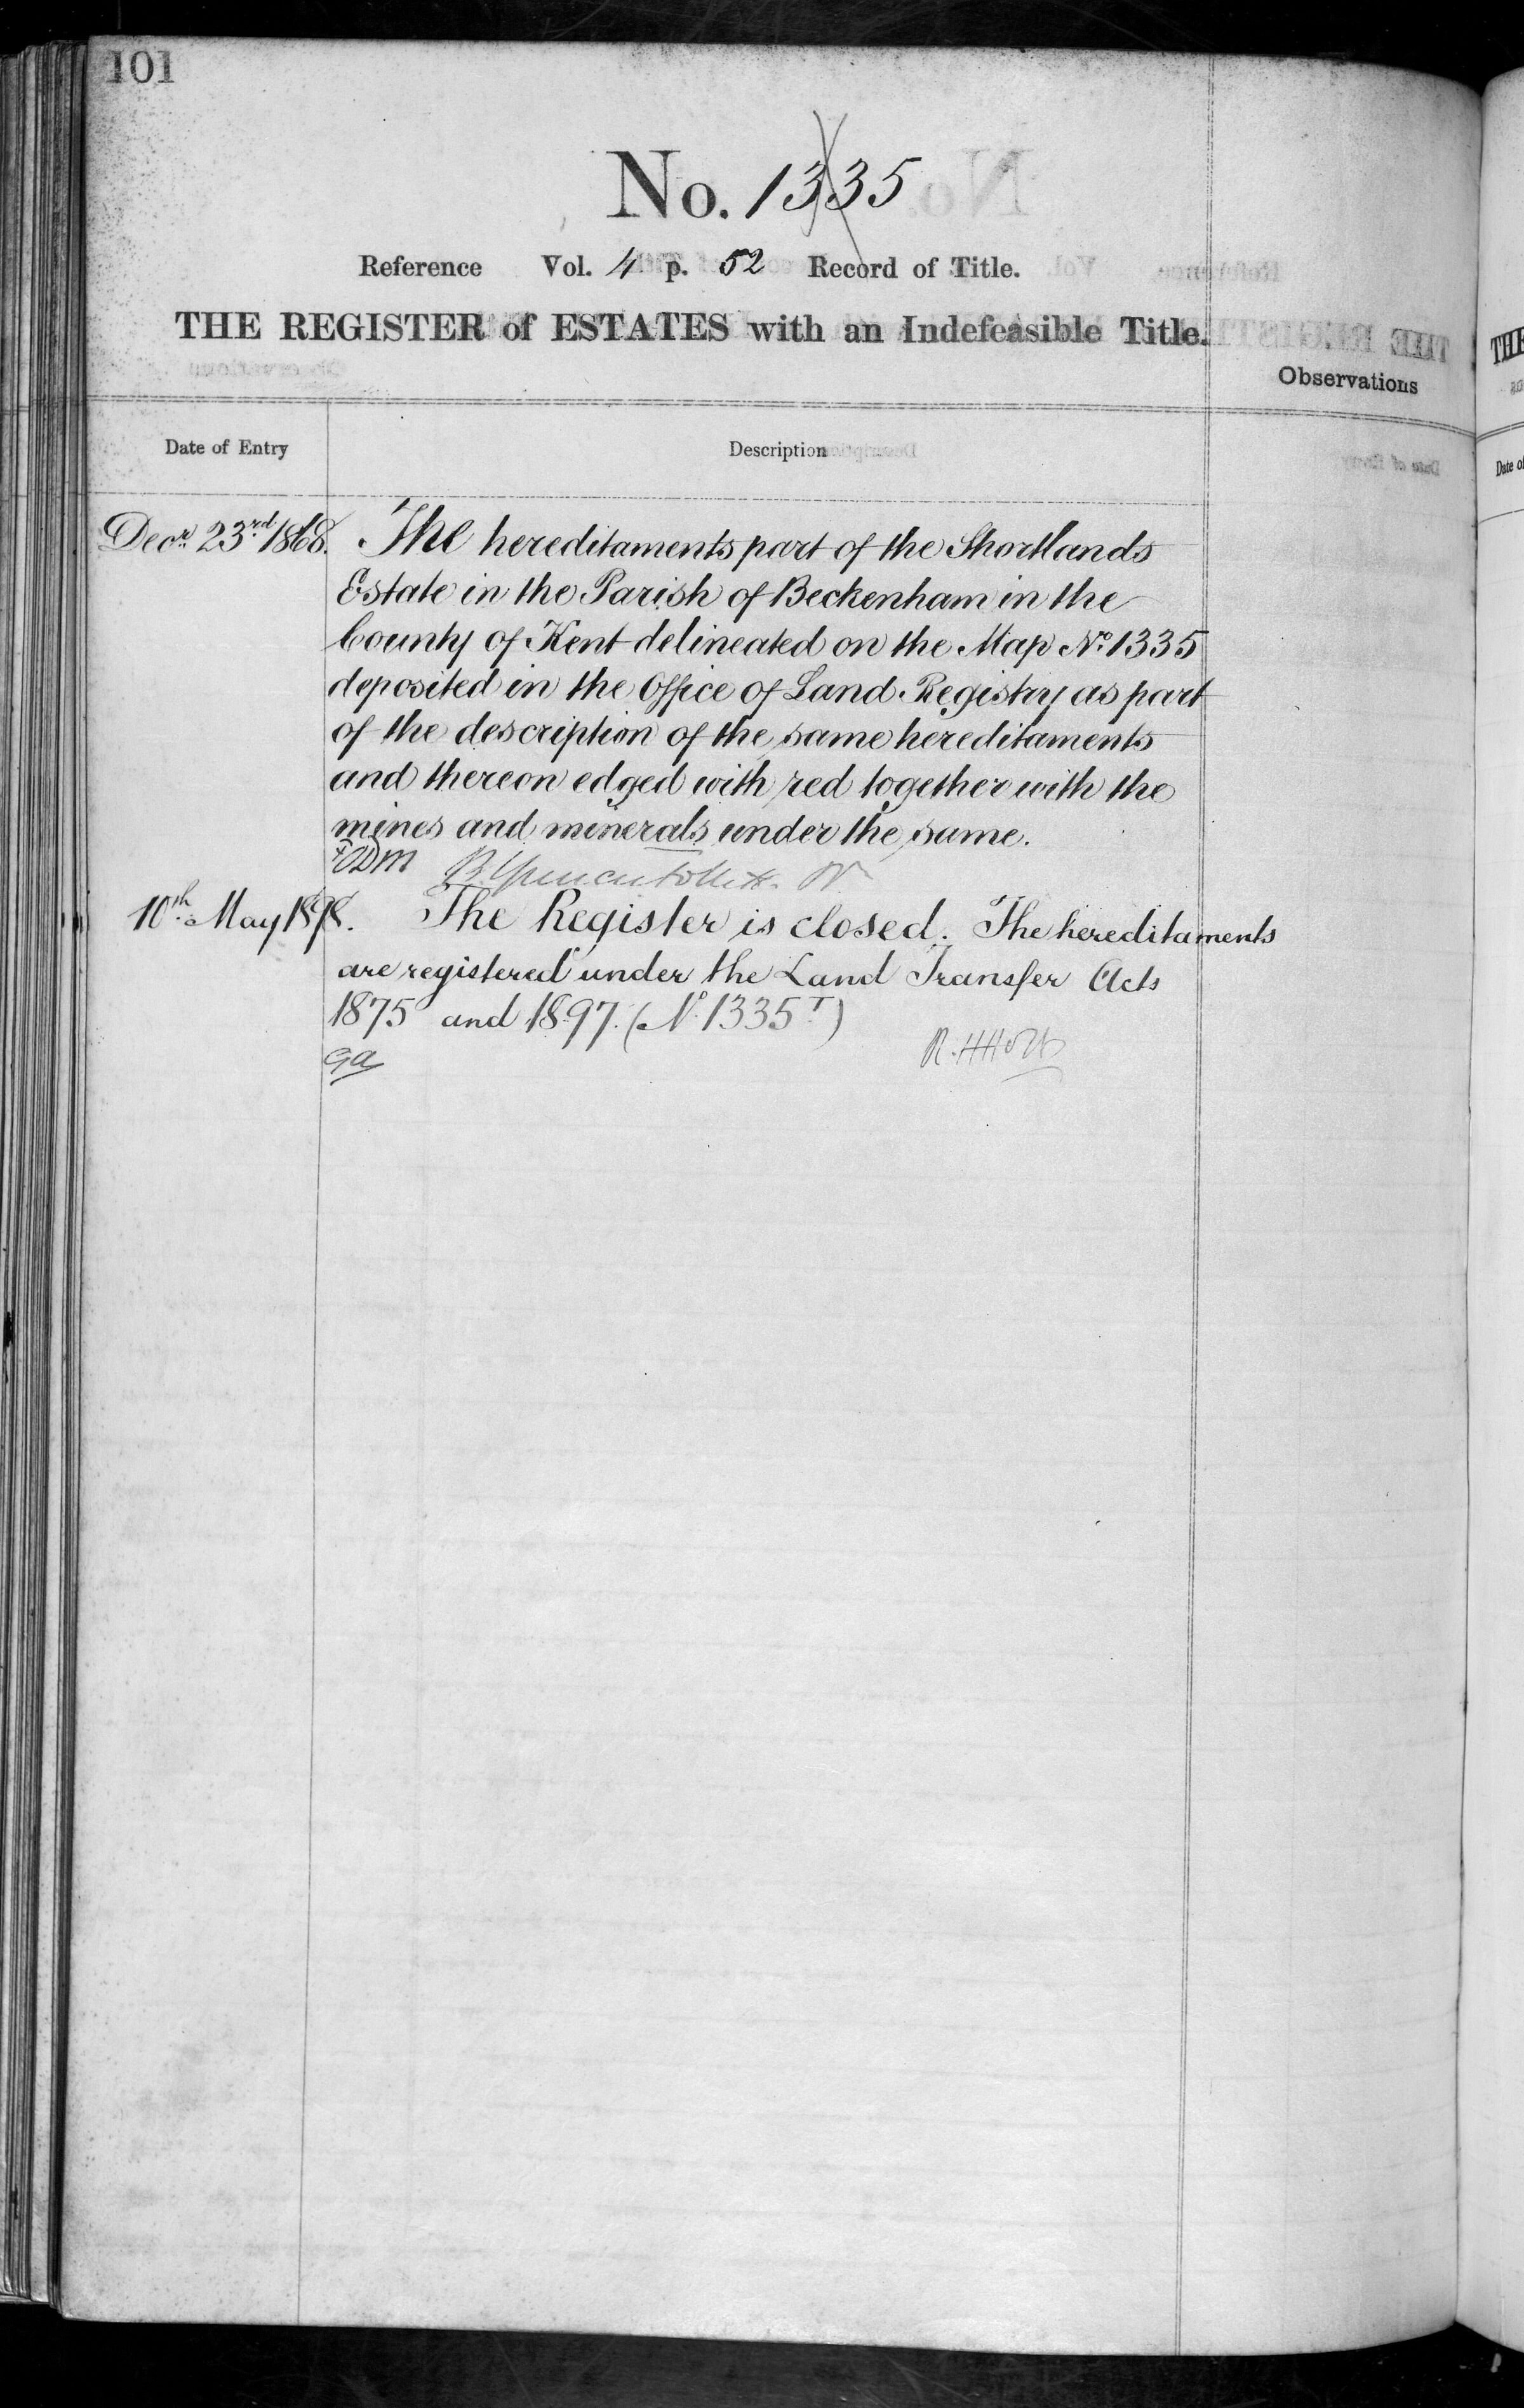 101
No. 1335
Reference Vol. 4 p. 52 Record of Title.
THE REGISTER of ESTATES with an Indefeasible Title.
Observations
Date of Entry
Description
Decr. 23rd 1868. The hereditaments part of the Shortlands
Estate in the Parish of Beckenham in the
County of Kent delineated on the Map No. 1335
deposited in the Office of Land Registry as part
of the description of the same hereditaments
and thereon edged with red together with the
mines and minerals under the same.
10th May 1898. The Register is closed. The hereditaments
are registered under the Land Transfer Acts
1875 and 1897. (No. 1335 T)
R. H Holt